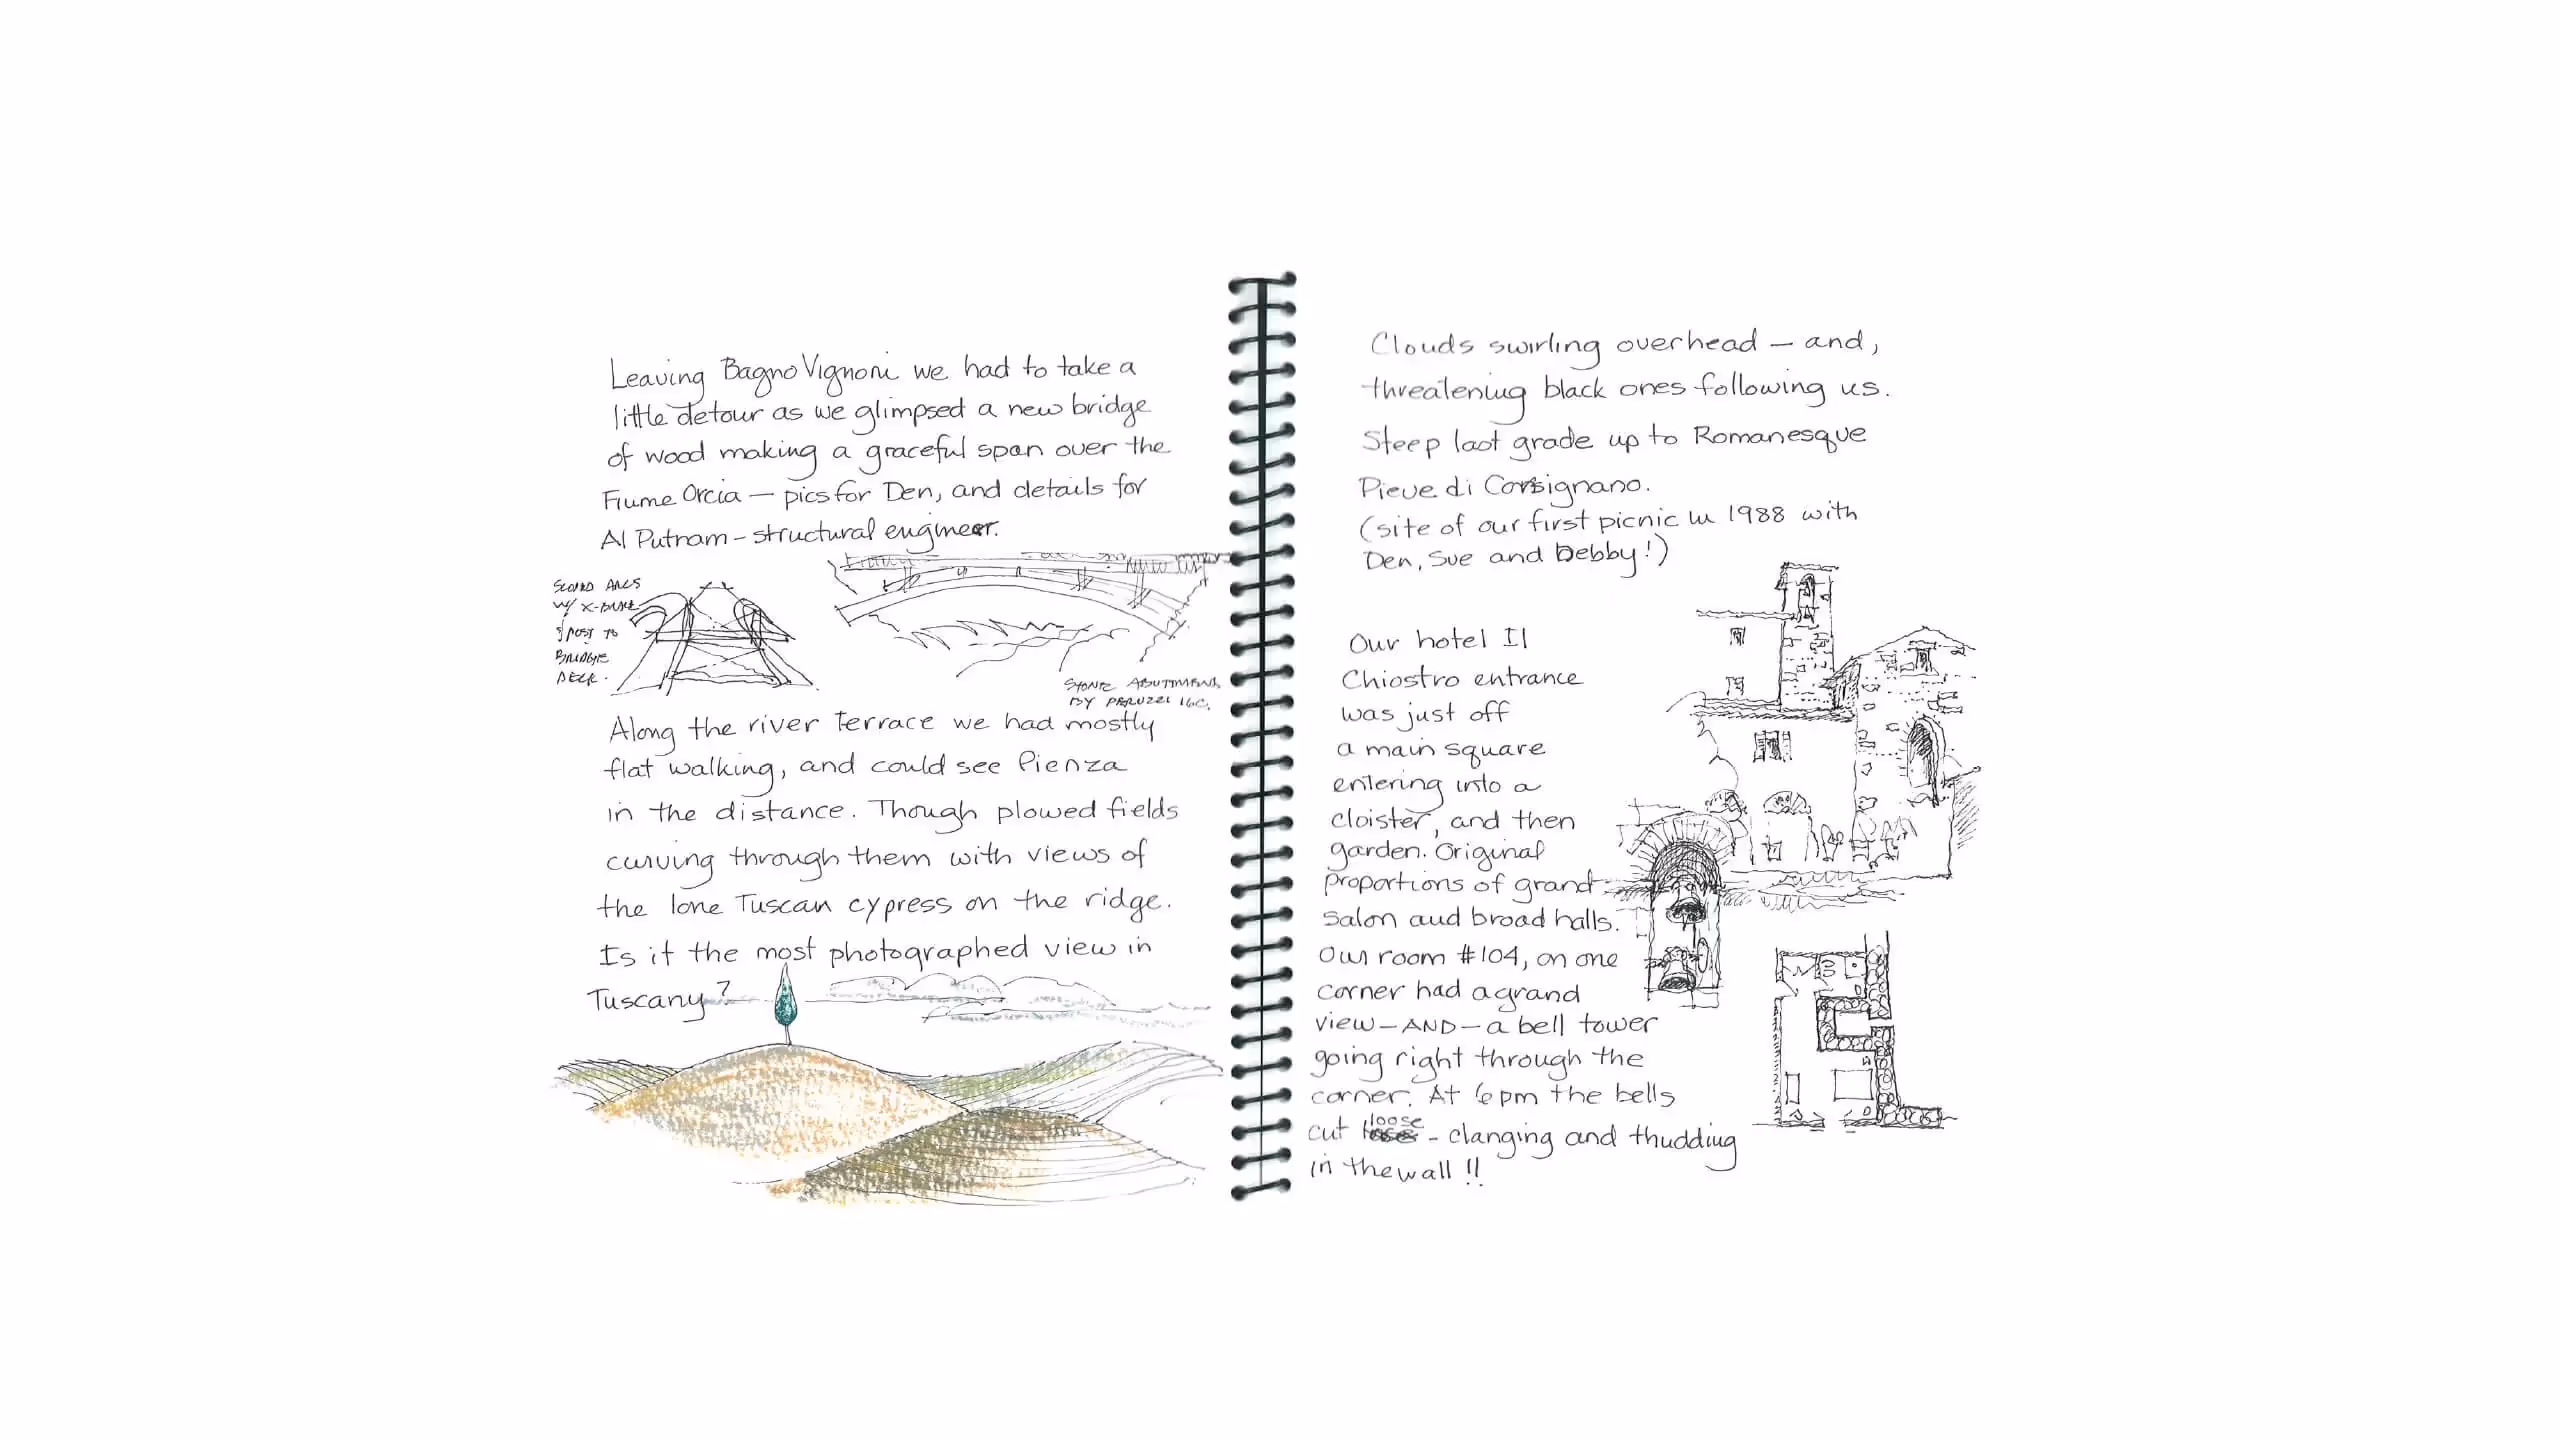 Leaving Bagno Vignoni we had to take a
little detour as we glimpsed a new bridge
of wood making a graceful span over the
Fiume Orcia — pics for Den, and details for
Al Putnam - structural engineer.
W/ X-BRACE
& POST TO
BRIDGE
DECK.
STONE ABUTTMENTS
BY PERUZZI 16C.
Along the river terrace we had mostly
flat walking, and could see Pienza
in the distance. Though plowed fields
curving through them with views of
the lone Tuscan cypress on the ridge.
Is it the most photographed view in
Tuscany?
Clouds swirling overhead — and,
threatening black ones following us.
Steep last grade up to Romanesque
Pieve di Corsignano.
(site of our first picnic in 1988 with
Den, Sue and Debby!)
Our hotel Il
Chiostro entrance
was just off
a main square
entering into a
cloister, and then
garden. Original
proportions of grand
salon and broad halls.
Our room #104, on one
corner had a grand
view - AND - a bell tower
going right through the
corner. At 6pm the bells
cut loose - clanging and thudding
in the wall !!